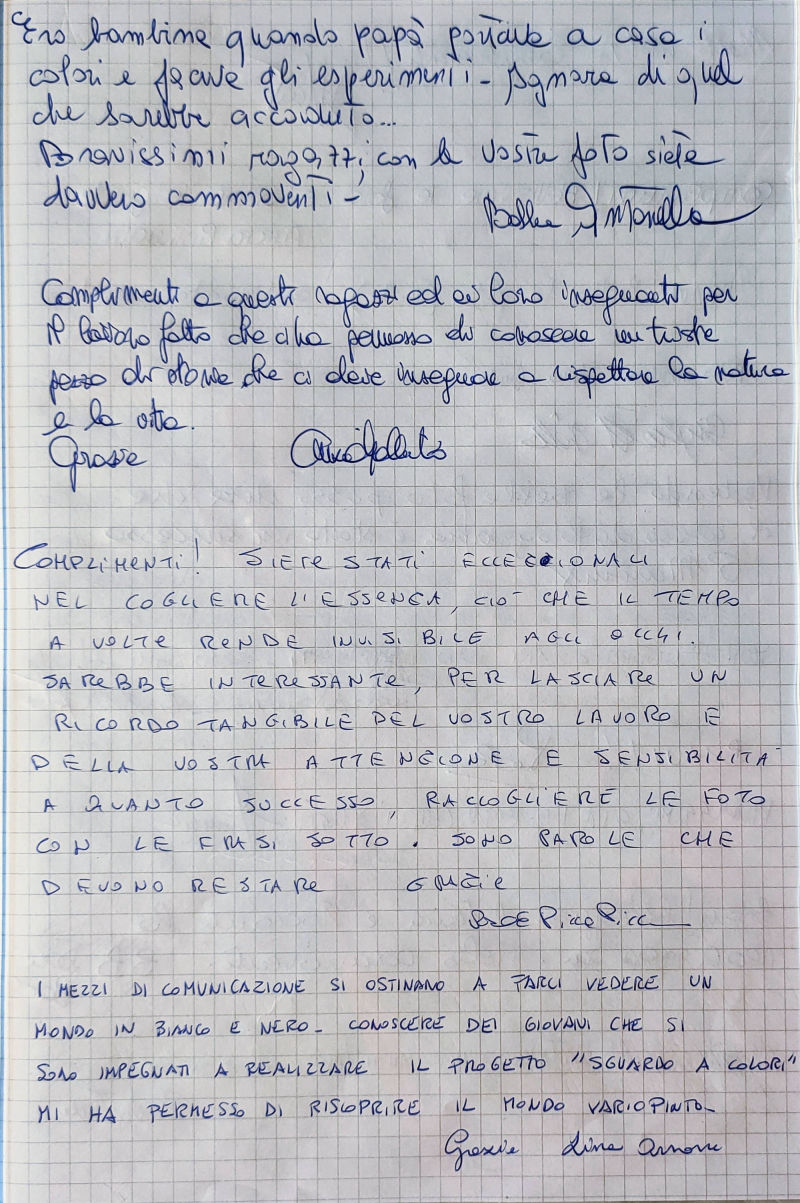 Ero bambina quando papà portava a casa i
colori e faceva gli esperimenti - Ignara di quel
che sarebbe accaduto...
Bravissimi ragazzi, con le vostre foto siete
davvero commoventi -
Complimenti a questi ragazzi ed ai loro insegnanti per
il lavoro fatto che ci ha permesso di conoscere un triste
pezzo di storia che ci deve insegnare a rispettare la natura
e la vita.
Grazie
COMPLIMENTI! SIETE STATI ECCEZIONALI
NEL COGLIERE L'ESSENZA, CIO' CHE IL TEMPO
A VOLTE RENDE INVISIBILE AGLI OCCHI.
SAREBBE INTERESSANTE, PER LASCIARE UN
RICORDO TANGIBILE DEL VOSTRO LAVORO E
DELLA VOSTRA ATTENZIONE E SENSIBILITA'
A QUANTO SUCCESSO, RACCOGLIERE LE FOTO
CON LE FRASI SOTTO. SONO PAROLE CHE
DEVONO RESTARE GRAZIE
I MEZZI DI COMUNICAZIONE SI OSTINANO A FARCI VEDERE UN
MONDO IN BIANCO E NERO - CONOSCERE DEI GIOVANI CHE SI
SONO IMPEGNATI A REALIZZARE IL PROGETTO "SGUARDO A COLORI"
MI HA PERMESSO DI RISCOPRIRE IL MONDO VARIOPINTO -
Grazie Lina